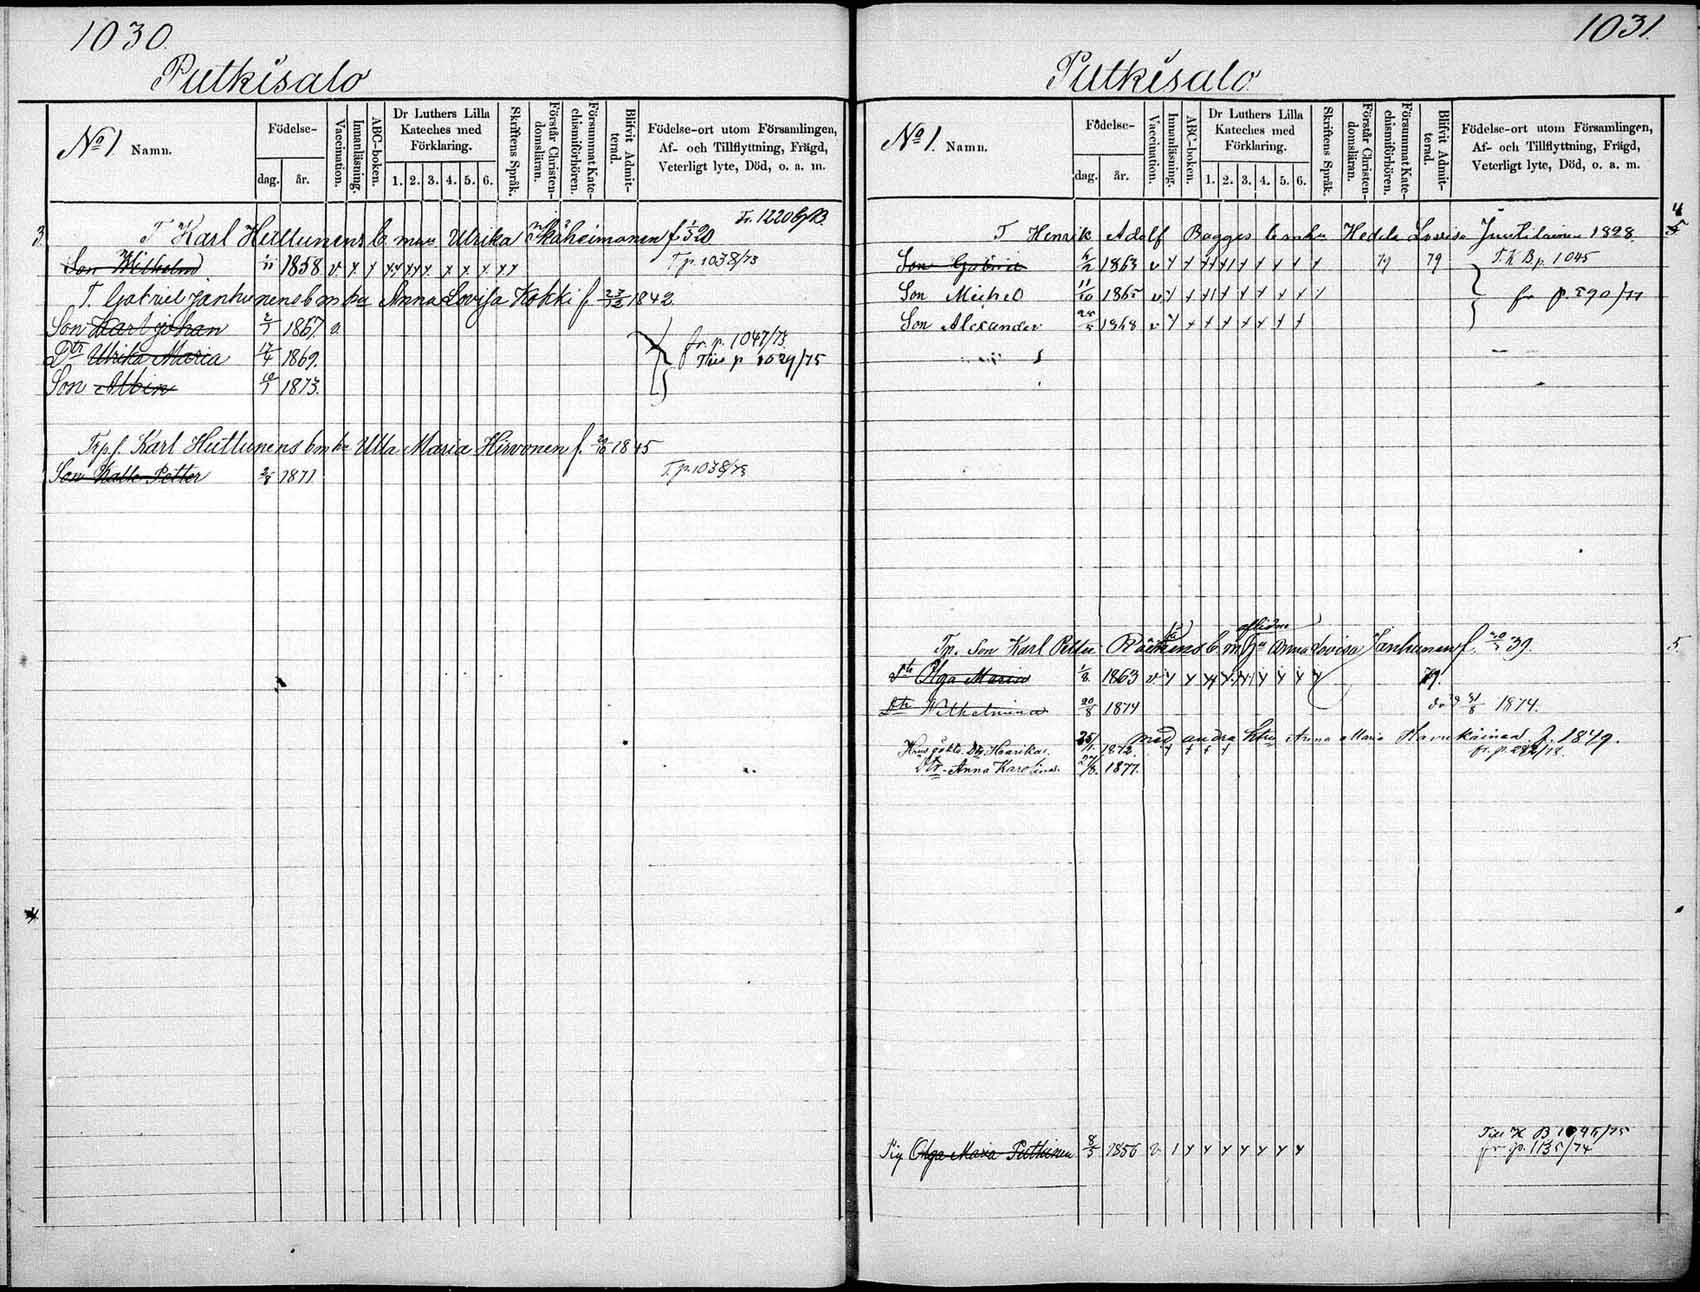 1030.
Putkisalo
No 1. Namn.
Födelse-
dag. år.
Vaccination.
Innanläsning.
ABC-boken.
Dr Luthers Lilla Kateches med Förklaring.
1. 2. 3. 4. 5. 6.
Skriftens Språk.
Förstår Christendomsläran.
Försummat Katechismiförhören.
Blifvit Admitterad.
Födelse-ort utom Församlingen, Af- och Tillflyttning, Frägd, Veterligt lyte, Död, o. a. m.
Fr. 1220
3 T. Karl Huttunens b. m. Ulrika f. 20
Son Wilhelm 11 1858 v x x x x x x x x x x x x T. p. 1038/73
T. Gabriel Janhunens b m ha Anna Lovisa Kokki f. 1842
Son Karl Johan 1867. v.
fr. p. 1047/73
Dtr Ulrika Maria 17/4 1869. Till p 1029/75
Son Albin 1873.
Karl Huttunens b m ha Ulla Maria Hirvonen f. 1845
Son Kalle Petter 1871 T. p. 1038/73
4
1031.
Putkisalo
No 1. Namn.
Födelse-
dag. år.
Vaccination.
Innanläsning.
ABC-boken.
Dr Luthers Lilla Kateches med Förklaring.
1. 2. 3. 4. 5. 6.
Skriftens Språk.
Förstår Christendomsläran.
Försummat Katechismiförhören.
Blifvit Admitterad.
Födelse-ort utom Församlingen, Af- och Tillflyttning, Frägd, Veterligt lyte, Död, o. a. m.
4
T Henrik Adolf Bagges Hedda Lovisa 1828.
Son Gabriel 1863 v x x x x x x x x x 79 79 p. 1045
Son Michel 11/10 1865 v x x x x x x x x fr p. 590/71
Son Alexander 1868 v x x x x x x x
aflidne
Tp. Son Karl Petter b. m. ha Anna Lovisa Janhunen f. 39. 5.
Dtr Olga Maria 1/8. 1863 v x x x x x x x x x 79.
Dtr Wilhelmina 20/8 1874 31/8 1874.
med andra Anna Maria f. 1849.
Dtr Henrika. 25/1. 1872 fr. p. 282/72
Dtr Anna Karolina. 27/8. 1877.
Pig Olga Maria Putkinen 8/5 1856 v 1 x x x x x x x
Till
fr p. 1135/74